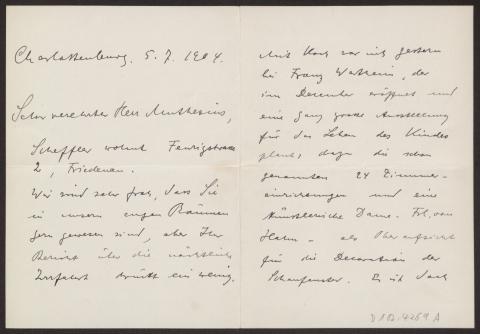 Charlottenburg. 5. 7. 1904.
Sehr verehrter Herr Muthesius,
Scheffler wohnt Feurigstrasse
2, Friedenau.
Wir sind sehr froh, dass Sie
in unsern engen Räumen
gern gewesen sind, aber Ihr
Bericht über die nächtliche
Irrfahrt drückt ein wenig.
Mit Koch war ich gestern
bei Franz Wertheim, der
im Dezember eröffnet und
eine ganz grosse Ausstellung
für das Leben des Kindes
plant, dazu die schon
genannten 24 Zimmer-
einrichtungen und eine
künstlerische Dame. Frl. von
Hahn - als Oberaufsicht
für die Decoration der
Schaufenster. Es ist doch